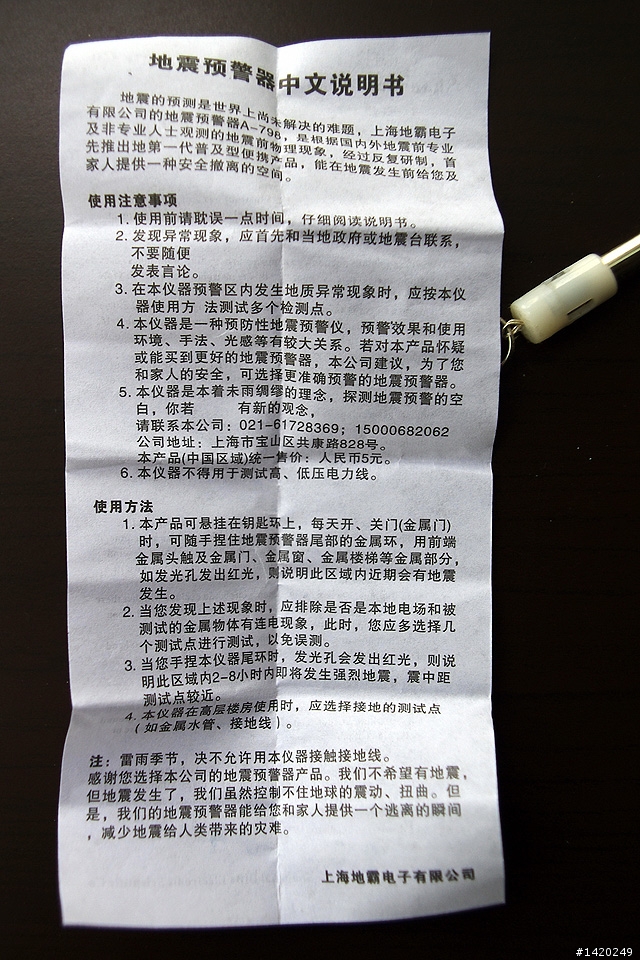 地震预警器中文说明书
地震的预测是世界上尚未解决的难题，上海地霸电子
有限公司的地震预警器A-798，是根据国内外地震前专业
及非专业人士观测的地震前物理现象，经过反复研制，首
先推出地第一代普及型便携产品，能在地震发生前给您及
家人提供一种安全撤离的空间。
使用注意事项
1. 使用前请耽误一点时间，仔细阅读说明书。
2. 发现异常现象，应首先和当地政府或地震台联系，
不要随便
发表言论。
3. 在本仪器预警区内发生地质异常现象时，应按本仪
器使用方 法测试多个检测点。
4. 本仪器是一种预防性地震预警仪，预警效果和使用
环境、手法、光感等有较大关系。若对本产品怀疑
或能买到更好的地震预警器，本公司建议，为了您
和家人的安全，可选择更准确预警的地震预警器。
5. 本仪器是本着未雨绸缪的理念，探测地震预警的空
白，你若 有新的观念，
请联系本公司：021-61728369；15000682062
公司地址：上海市宝山区共康路828号。
本产品(中国区域)统一售价：人民币5元。
6. 本仪器不得用于测试高、低压电力线。
使用方法
1. 本产品可悬挂在钥匙环上，每天开、关门(金属门)
时，可随手捏住地震预警器尾部的金属环，用前端
金属头触及金属门、金属窗、金属楼梯等金属部分，
如发光孔发出红光，则说明此区域内近期会有地震
发生。
2. 当您发现上述现象时，应排除是否是本地电场和被
测试的金属物体有连电现象，此时，您应多选择几
个测试点进行测试，以免误测。
3. 当您手捏本仪器尾环时，发光孔会发出红光，则说
明此区域内2-8小时内即将发生强烈地震，震中距
测试点较近。
4. 本仪器在高层楼房使用时，应选择接地的测试点
（如金属水管、接地线）。
注：雷雨季节，决不允许用本仪器接触接地线。
感谢您选择本公司的地震预警器产品。我们不希望有地震，
但地震发生了，我们虽然控制不住地球的震动、扭曲。但
是，我们的地震预警器能给您和家人提供一个逃离的瞬间
，减少地震给人类带来的灾难。
上海地霸电子有限公司
#1420249